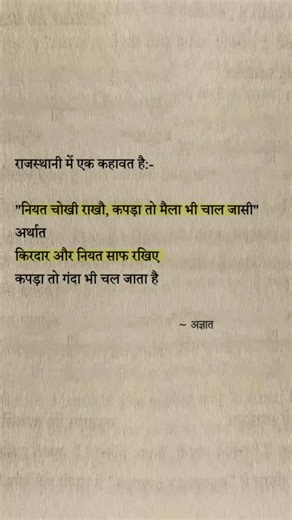 राजस्थानी में एक कहावत है:-
"नियत चोखी राखौ, कपड़ा तो मैला भी चाल जासी"
अर्थात
किरदार और नियत साफ रखिए
कपड़ा तो गंदा भी चल जाता है
~ अज्ञात